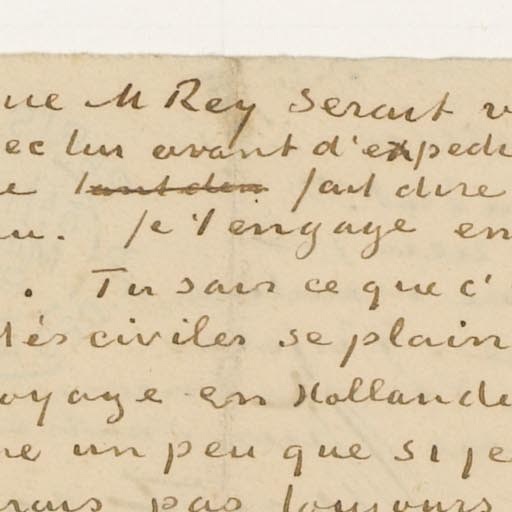 ue M Rey serait v
ec lui avant d'expedi
e fait dire
eu. Je t'engage en
. Tu sais ce que c'
tés civiles se plain
oyage en Hollande
ne un peu que si je
rais pas toujours